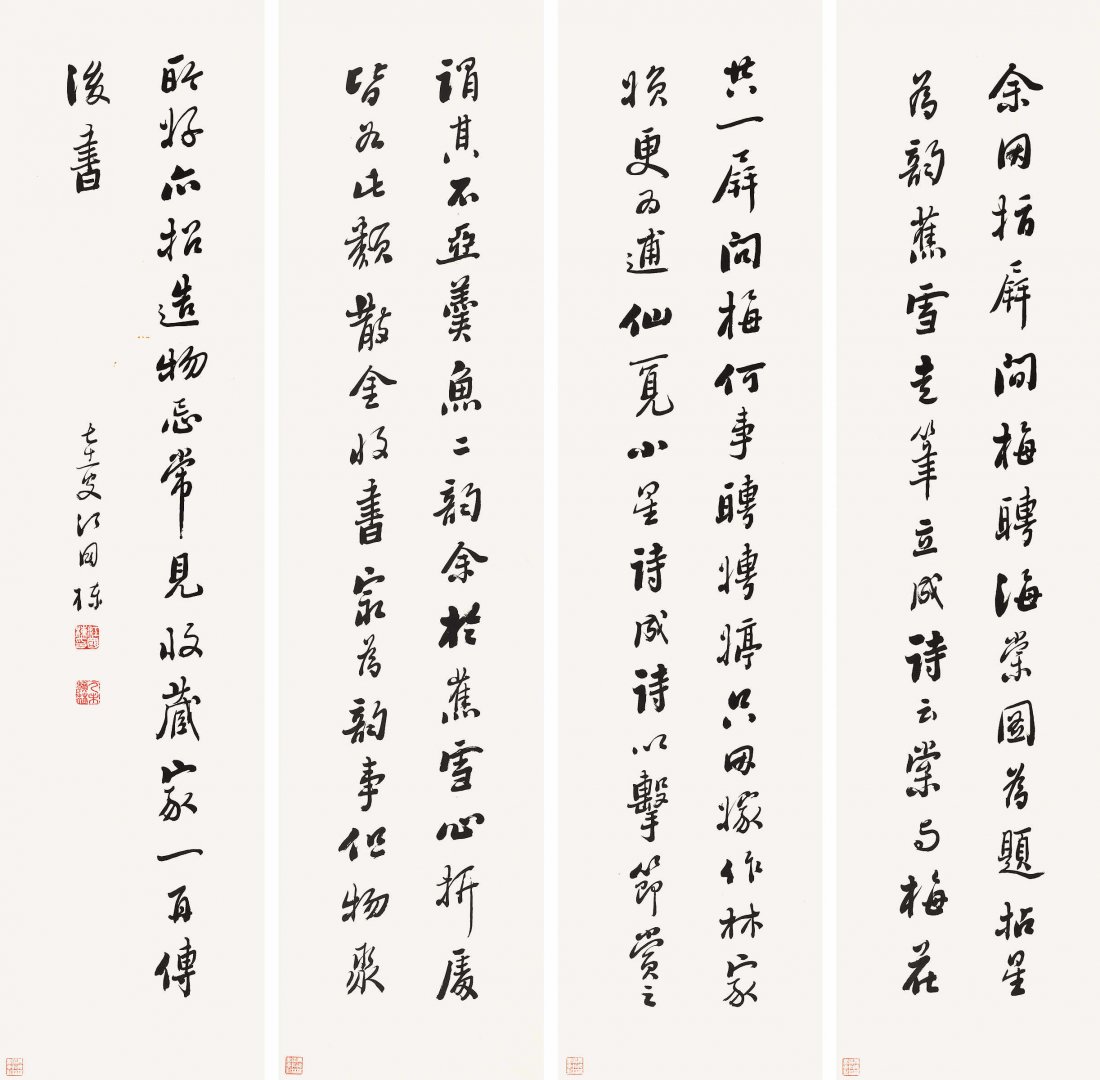 余因指屏間梅聘海棠圖為題拈星
為韵蕉雪走筆立成诗云棠与梅花
共一屏问梅何事聘娉婷只因嫁作林家
媍更为逋仙覓小星诗成诗以擊節賞之
謂其不亞羹魚二韵余於蕉雪心折處
皆若此類散金收書最為韵事但物聚
所好亦招造物忌常見收藏家一再傳
後書
叟江国栋